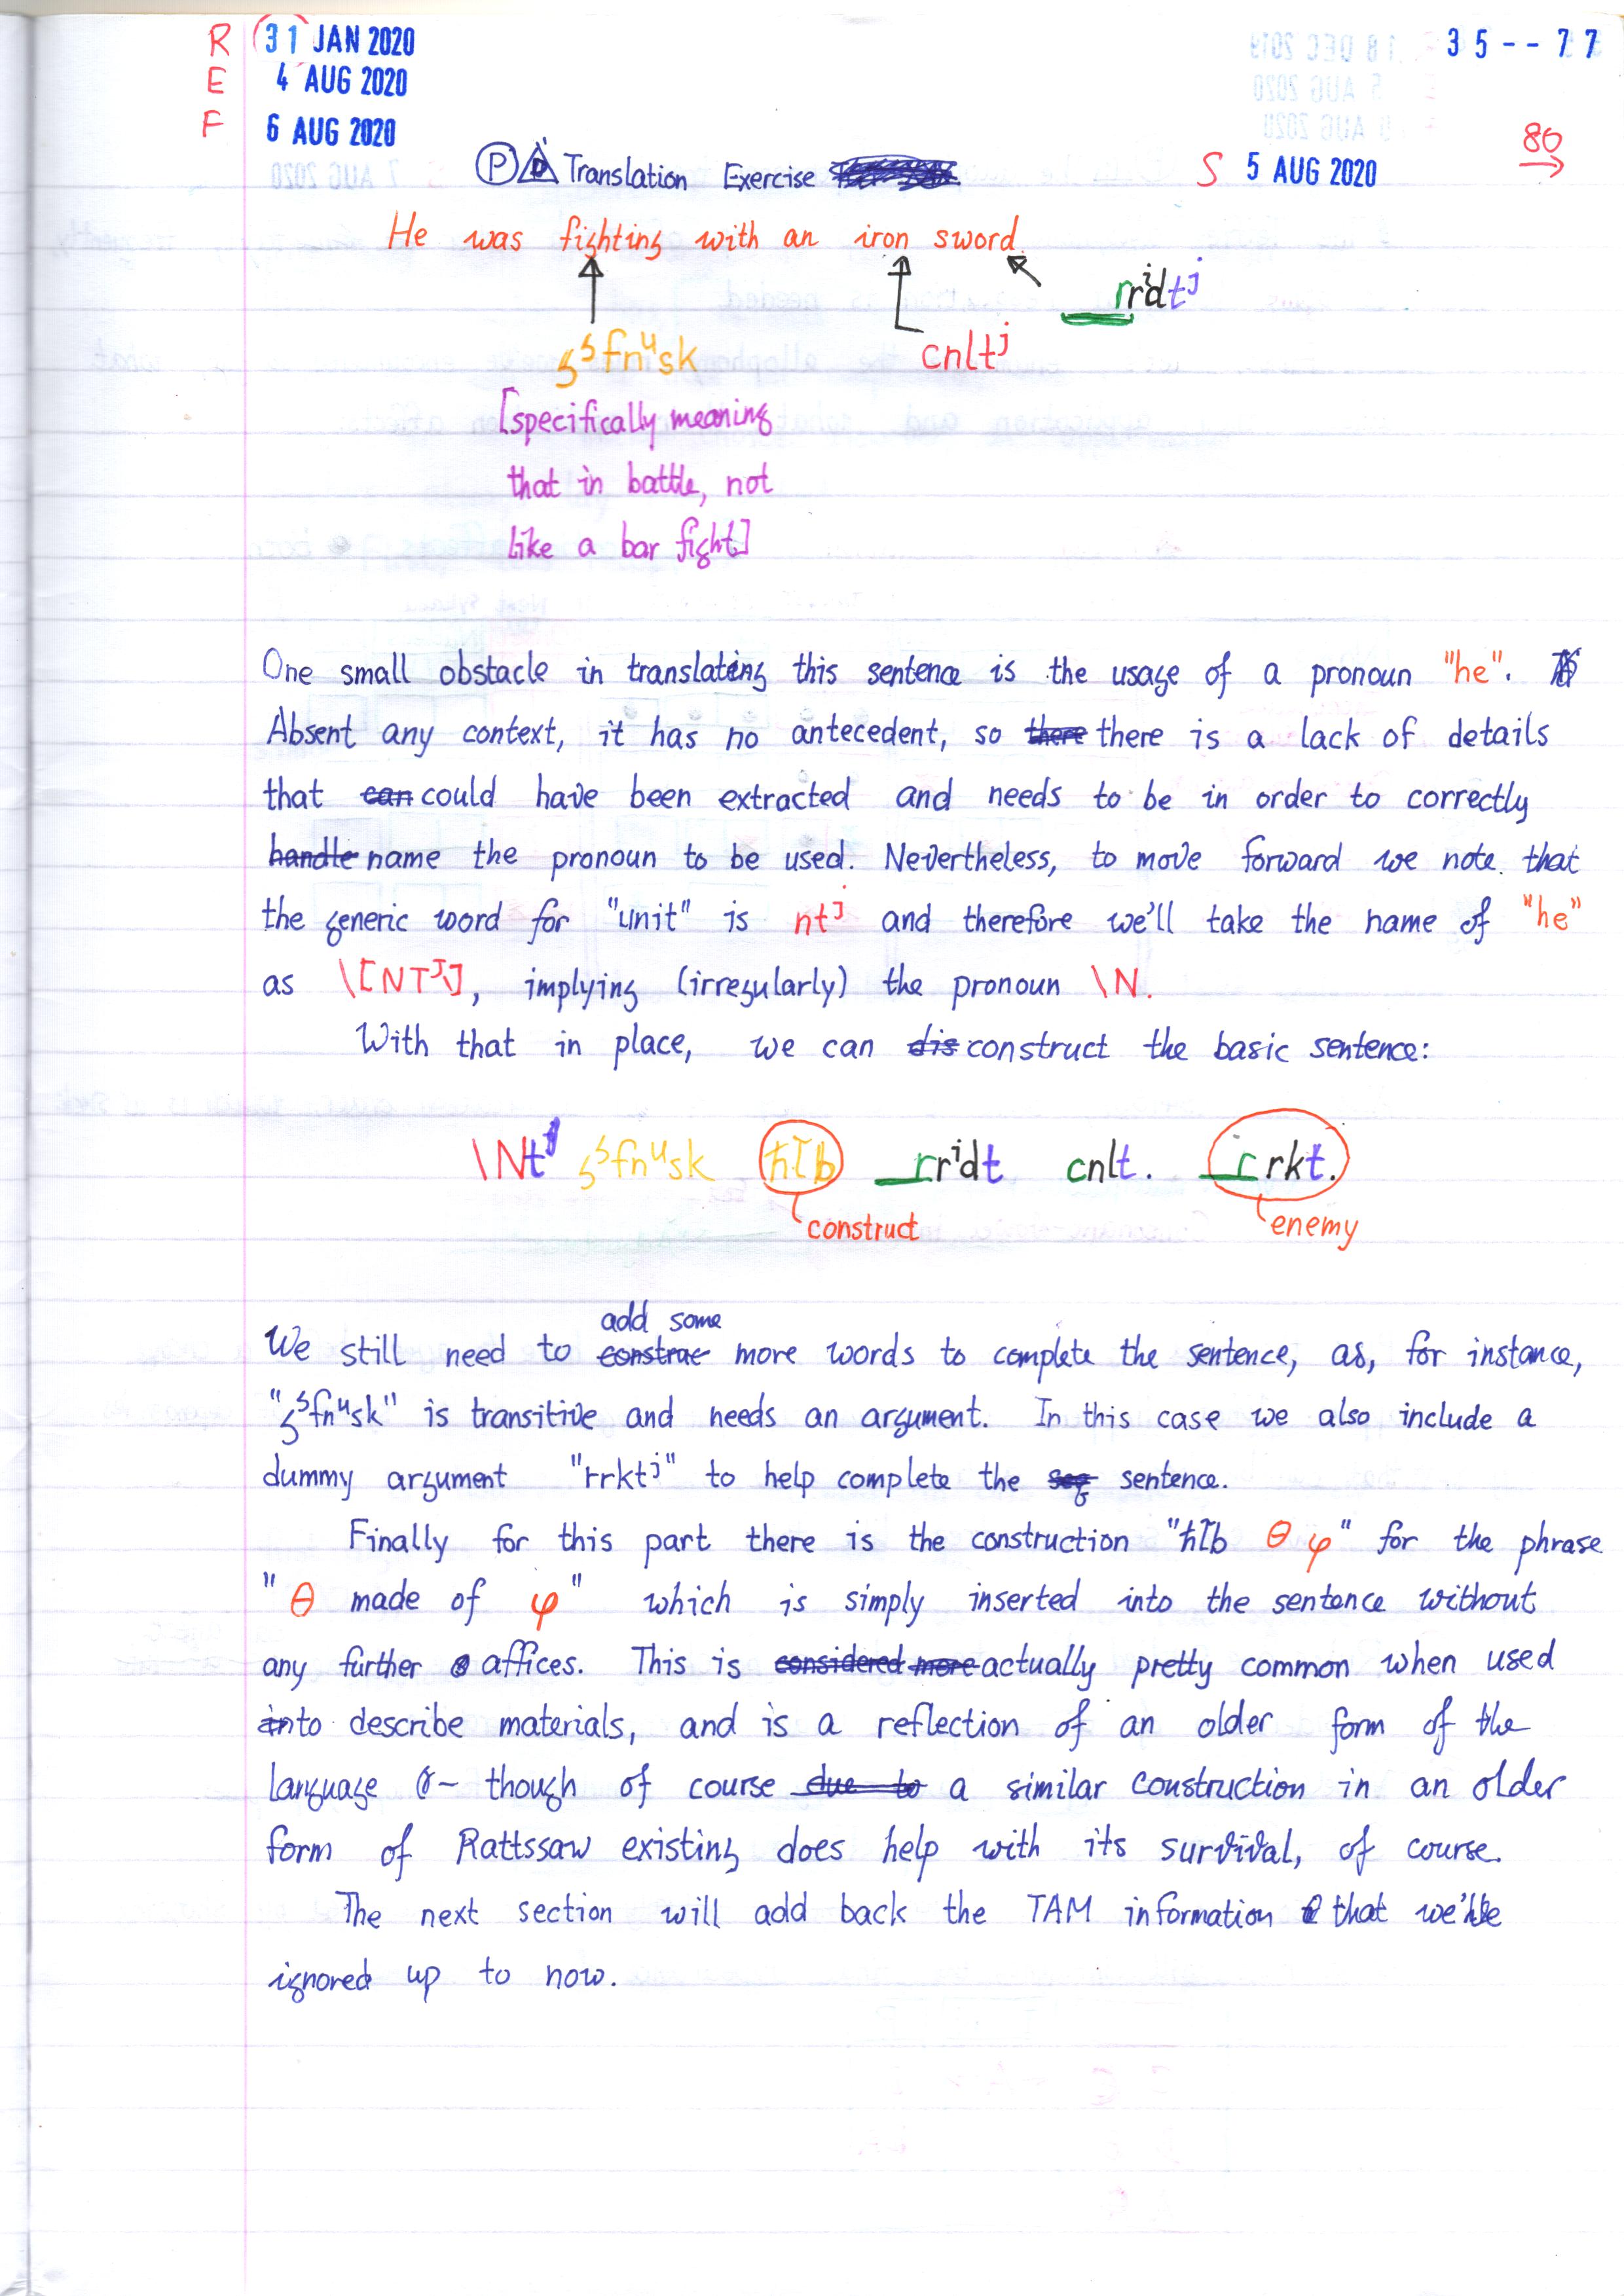 R 31 JAN 2020 35--77
E 4 AUG 2020
F 6 AUG 2020 80
P D Translation Exercise S 5 AUG 2020
He was fighting with an iron sword.
rrⁱdtʲ
cnltʲ
[specifically meaning
that in battle, not
like a bar fight]
One small obstacle in translating this sentence is the usage of a pronoun "he".
Absent any context, it has no antecedent, so there there is a lack of details
that can could have been extracted and needs to be in order to correctly
handle name the pronoun to be used. Nevertheless, to move forward we note that
the generic word for "unit" is ntʲ and therefore we'll take the name of "he"
as \[NTᴶ\], implying (irregularly) the pronoun \N.
With that in place, we can dis construct the basic sentence:
\Ntʲ ʢˢfnᶣsk ħꞁb rrⁱdt cnlt. rrkt.
construct enemy
add some
We still need to construc more words to complete the sentence, as, for instance,
is transitive and needs an argument. In this case we also include a
dummy argument "rrktʲ" to help complete the seq sentence.
Finally for this part there is the construction θ φ" for the phrase
"θ made of φ" which is simply inserted into the sentence without
any further affices. This is considered more actually pretty common when used
into describe materials, and is a reflection of an older form of the
language – though of course due to a similar construction in an older
form of Rattssaw existing does help with its survival, of course.
The next section will add back the TAM information that we've
ignored up to now.